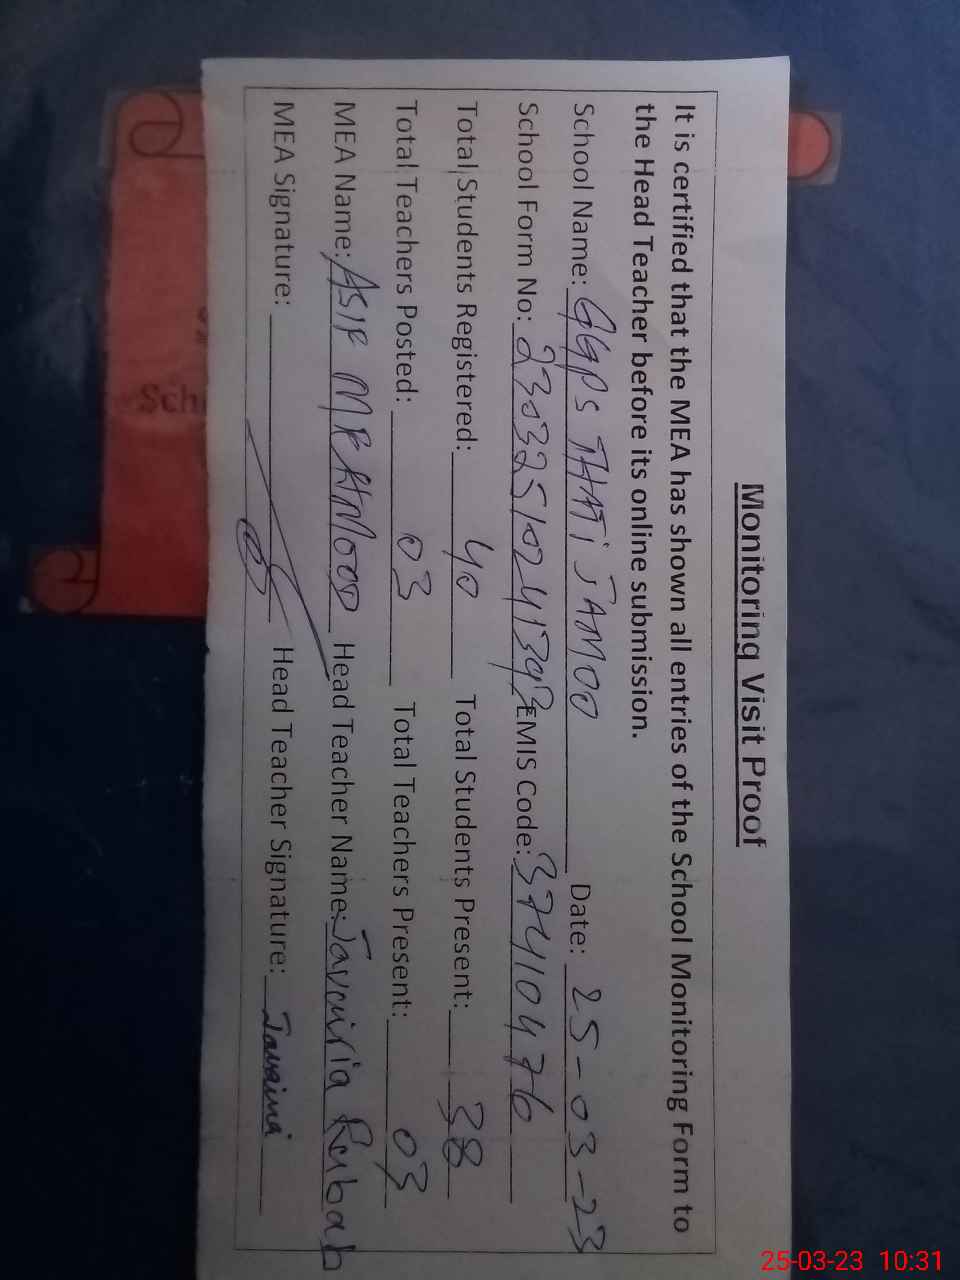 Monitoring Visit Proof
It is certified that the MEA has shown all entries of the School Monitoring Form to
the Head Teacher before its online submission.
School Name: GGPS THATi JAMOO Date: 25-03-23
School Form No: EMIS Code: 37410476
Total Students Registered: 40 Total Students Present: 38
Total Teachers Posted: 03 Total Teachers Present: 03
MEA Name: ASIF MEHMOOD Head Teacher Name: Javairia Rubab
MEA Signature: Head Teacher Signature:
Sch
25-03-23 10:31